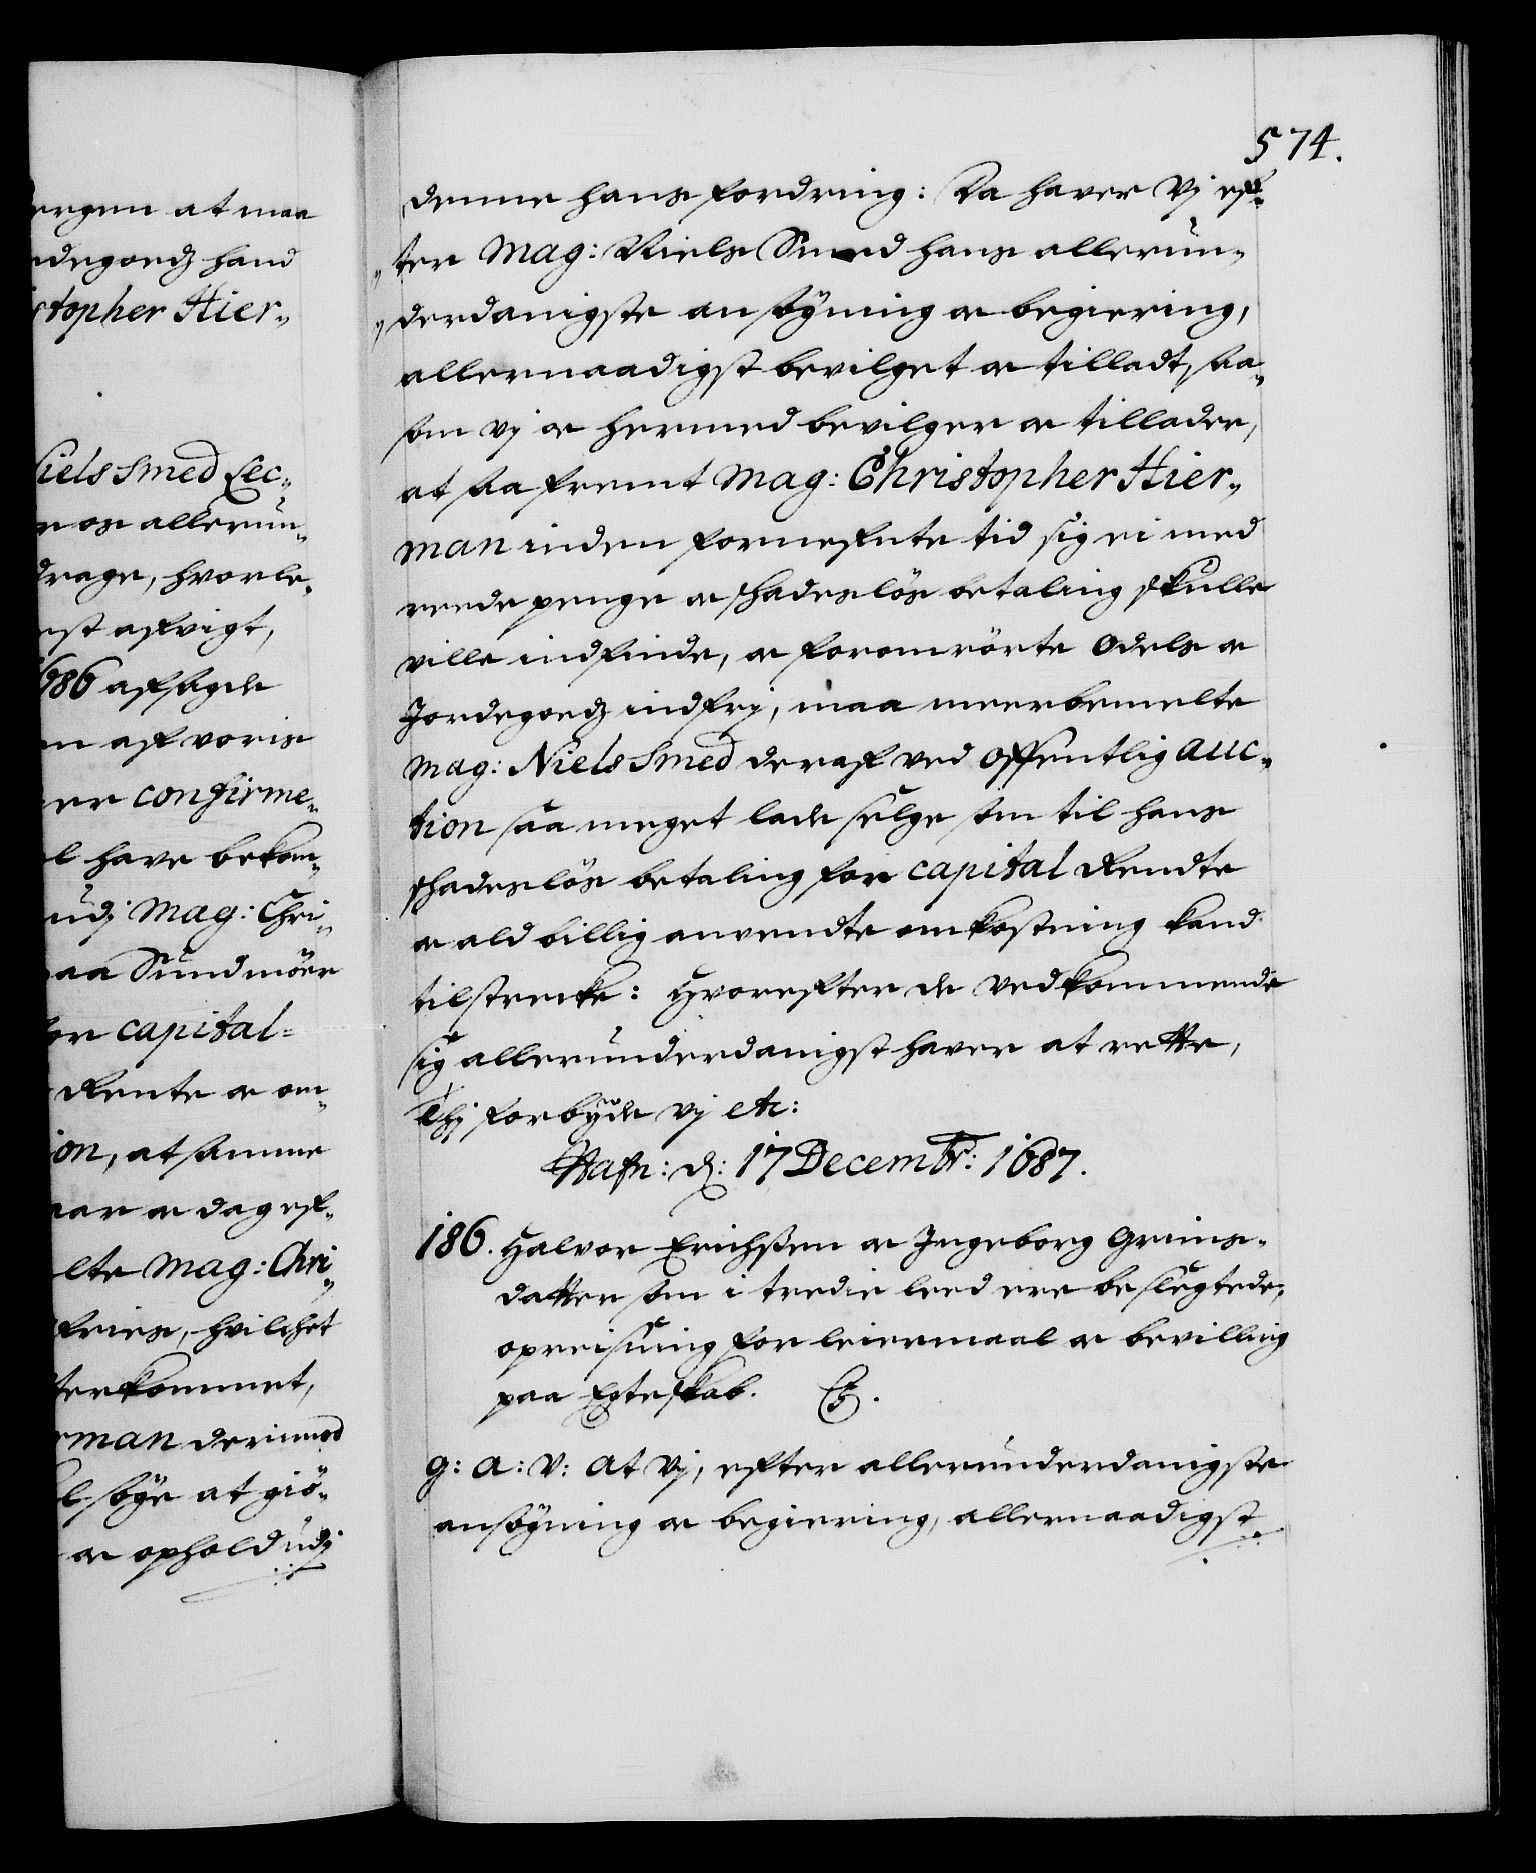 ergen at maa
ndegoedz hand
istopher Hier„
Niels Smed Lec„
er os allerun„
drage, hvorle„
est afsvigt,
1686 afsagde
en af voris
er confirme„
l have bekom„
udj Mag: Chri„
paa Sundmöer
for capital=
Rente oc om„
ion, at samme
aar oc dag ef„
lte Mag: Chri„
fries, hvilchet
terkommet,
rman derimod
l söge at giö„
oc ophold udj
574.
denne hans fordring: Da haver Vj ef„
„ter Mag: Niels Smed hans allerun„
„derdanigste ansögning oc begiering,
allernaadigst bevilget oc tilladt, saa„
som vj oc hermed bevilger oc tillader,
at saafremt Mag: Christopher Hier„
man inden fornefnte tid sig ei med
reede penge oc skadeslös betaling skulle
ville indfinde, oc foromrörte Odels oc
Jordegoedz indfrj, maa meerbemelte
Mag: Niels Smed deraf ved offentlig auc„
tion saa meget lade selge som til hans
skadeslös betaling for capital Rendte
oc ald billig anvendte omkostning kand
tilstrecke: Hvorefter de vedkommende
sig allerunderdanigst haver at rette,
Thj forbyde vj etc:
Hafn: d: 17 Decembr: 1687.
186. Halvor Erichssen oc Ingeborg Grims„
datter som i tredie leed ere beslegtede,
opreisning for leiermaal oc bevilling
paa Egteskab.
G: A: V: At Vj, efter allerunderdanigste
ansögning oc begiering, allernaadigst